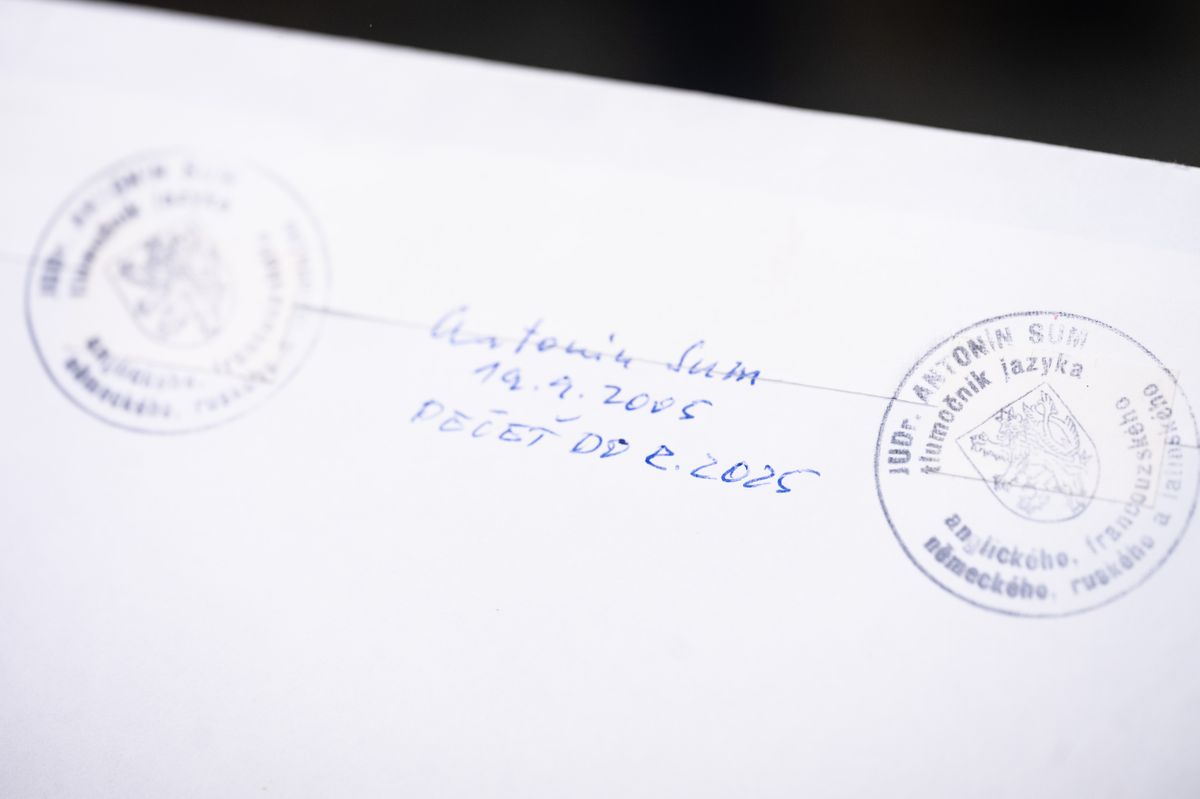 JUDr. ANTONÍN SUM
tlumočník jazyka
anglického, francouzského
německého, ruského
Antonín Sum
19.9.2005
PEČEŤ DO R. 2025
JUDr. ANTONÍN SUM
tlumočník jazyka
anglického, francouzského
německého, ruského a latinského